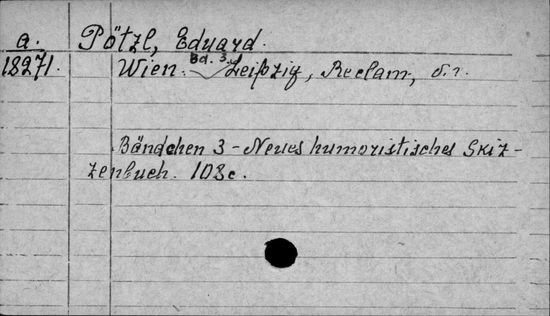 a. Pötzl, Eduard.
18271. Wien. Bd. 3. Leipzig, Reclam, o.J.
Bändchen 3 - Neues humoristisches Skiz-
zenbuch. 108c.